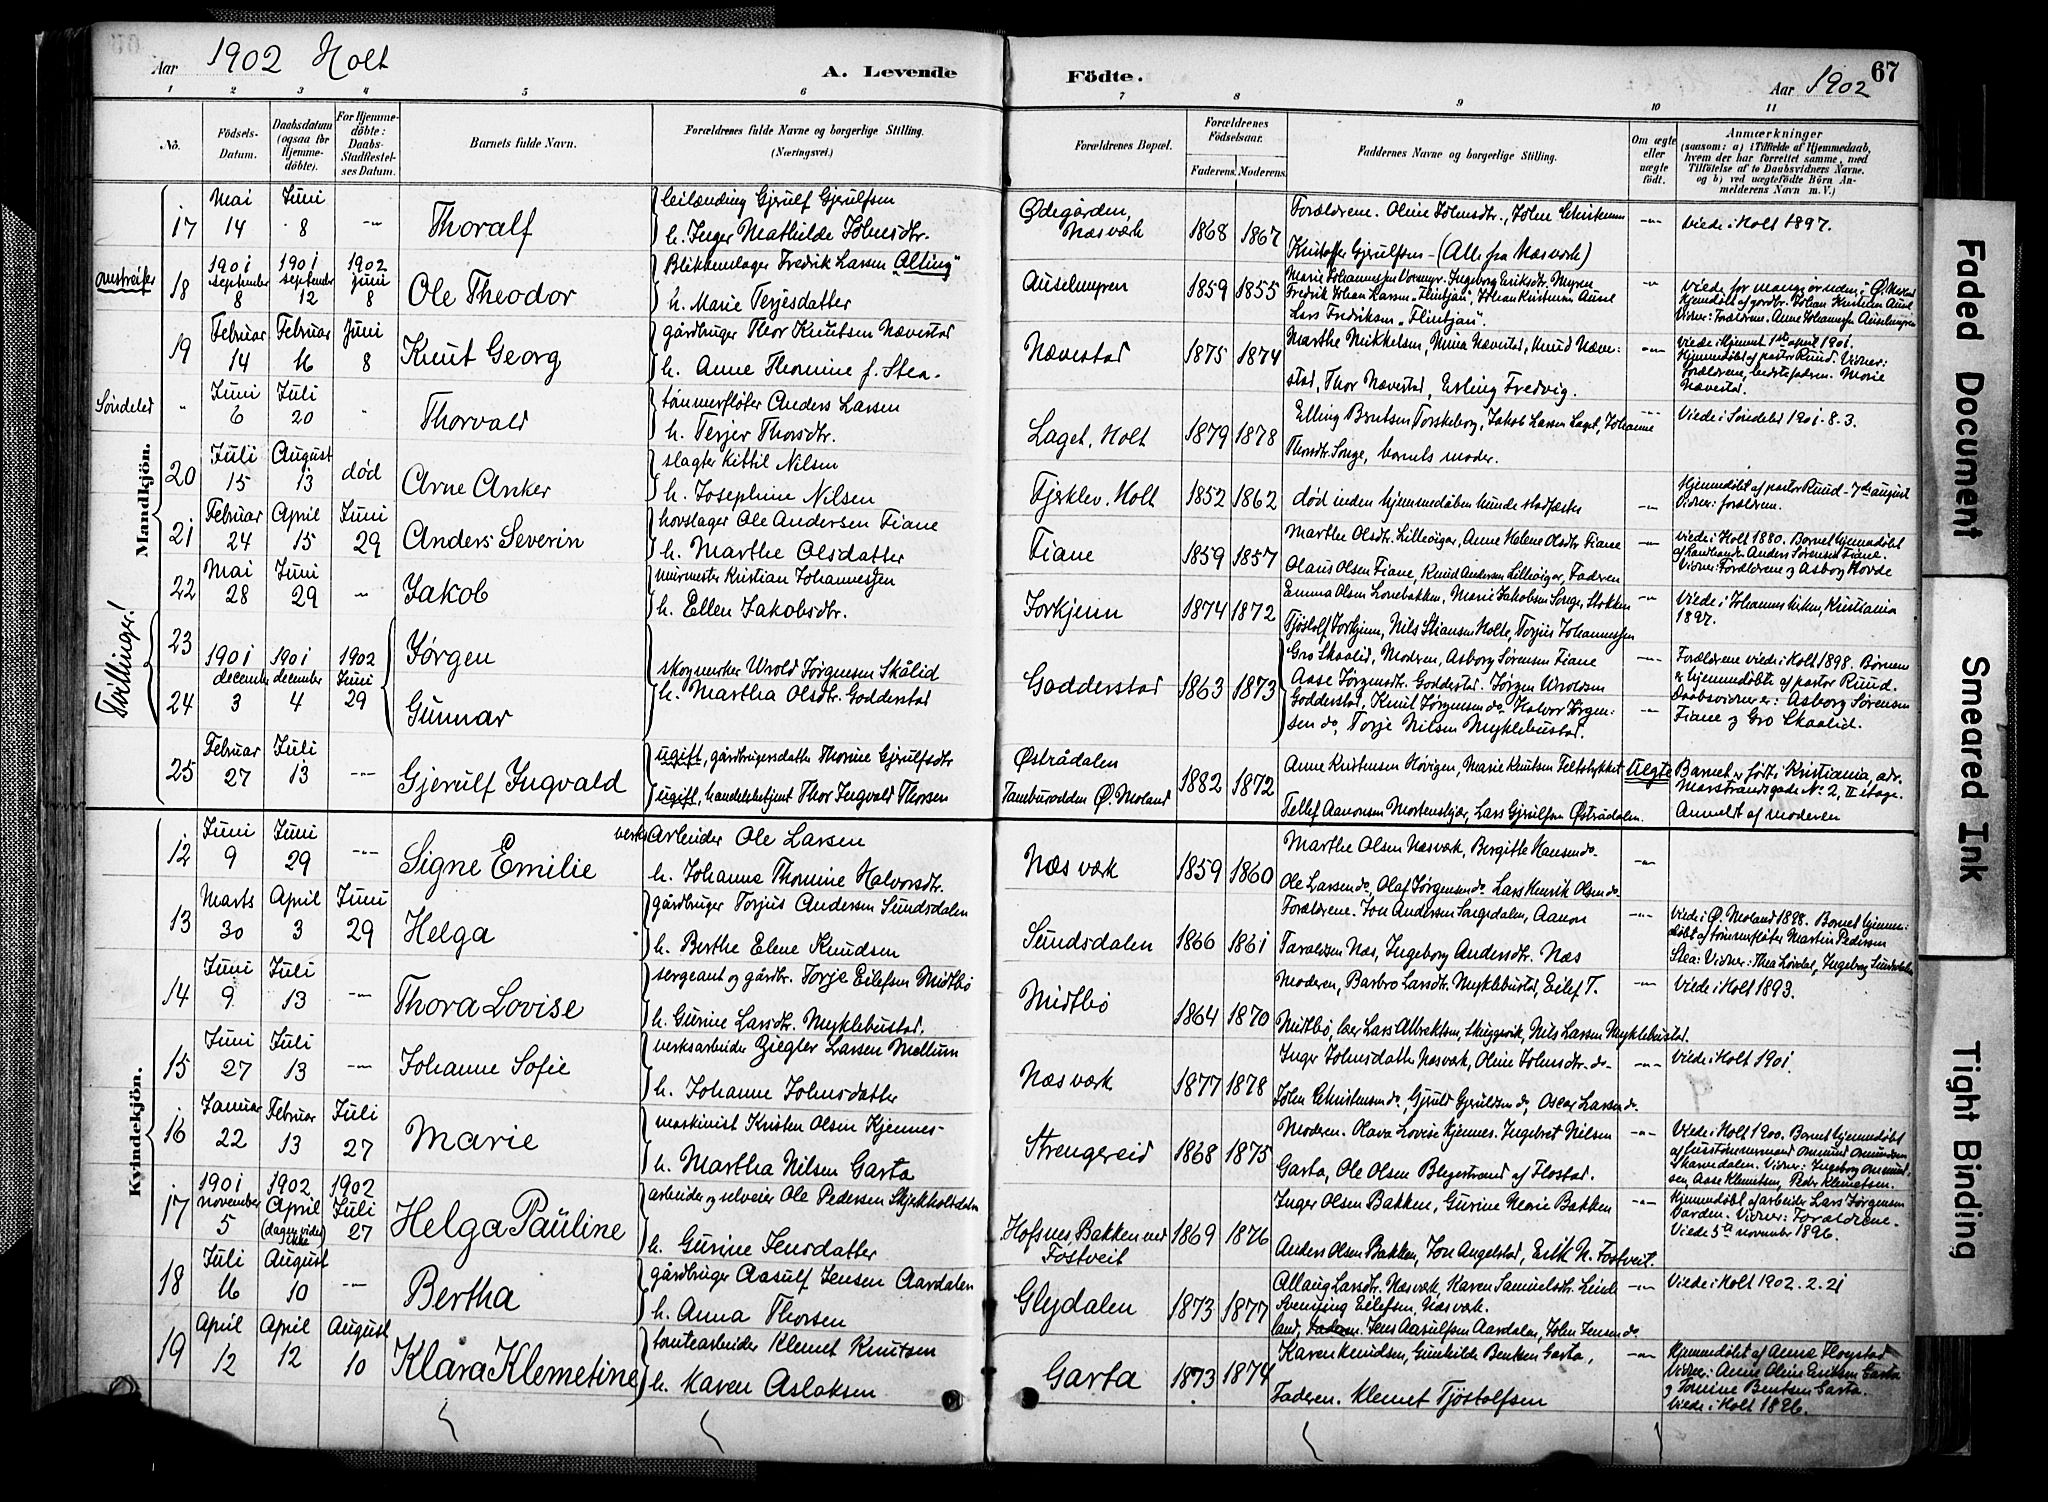 Aar 1902 Holt
A. Levende
Födte.
Aar 1902
67
1 2 3 4 5 6 7 8 9 10 11
No.
Födsels-Datum.
Daabsdatum (ogsaa for Hjemmedöbte).
For Hjemmedöbte: Daabs-Stadfæstelses Datum.
Barnets fulde Navn.
Forældrenes fulde Navne og borgerlige Stilling. (Næringsvei.)
Forældrenes Bopæl.
Forældrenes Födselsaar.
Faderens. Moderens.
Faddernes Navne og borgerlige Stilling.
Om ægte eller uægte födt.
Anmærkninger
(saasom: a) i Tilfælde af Hjemmedaab, hvem der har forrettet samme, med Tilföielse af to Daabsvidners Navne. og b) ved uægtefödte Börn Anmelderens Navn m. V.)
Mandkjön.
17 Mai 14 Juni 8 -- Thoralf
leilending Gjerulf Gjerulfsen
h. Inger Mathilde Johnsdtr.
Ødegården, Næsværk 1868 1867
Forældrene. Oline Johnsdtr., John Christensen
Kristoffer Gjerulfsen - (Alle fra Næsværk)
Viede i Holt 1897.
omstreifer
18 1901 september 8 1901 september 12 1902 Juni 8 Ole Theodor
Blikkenslager Fredrik Larsen "Alting"
h. Marie Terjesdatter
Auselmyren 1859 1855
Fredrik Johan Larsen "Flintjan", Johan Kristensen Ausel
Lars Fredriksen "Flintjan".
Viede for mange år siden i Ø. Moland
Hjemmedöbt af gårdbr. Johan Kristensen Ausel
Vidner: Forældrene. Anne Johannesen Auselmyren
19 Februar 14 Februar 16 Juni 8 Knut Georg
gårdbruger Thor Knutsen Nævestad
h. Anne Thomine f. Stea.
Nævestad 1875 1874
Marthe Mikkelsen, Anna Nævestad, Knud Næve:
stad, Thor Nævestad, Erling Fredvig.
Viede i Hjemmet 1ste april 1901.
Hjemmedöbt af pastor Ruud. Vidner:
Forældrene, bedstefaderen. Marie
Nævestad.
Söndeled
" Juni 6 Juli 20 " Thorvald
tömmerflöter Anders Larsen
h. Terjer Thorsdtr.
Laget, Holt 1879 1878
Elling Berntsen Torskeberg, Jakob Larsen Laget, Johanne
Thorsdtr. Songe, barnets moder.
Viede i Söndeled 1901-8-3.
20 Juli 15 August 13 död Arne Anker
slagter Kittil Nilsen
h. Josephine Nilsen
Fjerklev. Holt 1852 1862
död inden hjemmedåben kunde stadfæstes
Hjemmedöbt af pastor Ruud - 7de august
Vidner: forældrene.
21 Februar 24 April 15 Juni 29 Anders Severin
hovslager Ole Andersen Fiane
h. Marthe Olsdatter
Fiane 1859 1857
Marthe Olsdtr. Lilleviger, Anne Helene Olsdtr Fiane
Olaus Olsen Fiane, Knud Andersen Lilleviger, Faderen
Viede i Holt 1880. Barnet hjemmedöbt
af landhandler Anders Sörensen Fiane.
Vidner: Forældrene og Asborg Hovde
22 Mai 28 Juni 29 -- Jakob
murmester Kristian Johannesen
h. Ellen Jakobsdtr.
Torkjenn 1874 1872
Emma Olsen Lonebakken, Marie Jakobsen Songe, Stokken
Tjöstolf Torkjenn, Nils Stiansen Holte, Torjus Johannesen
Viede i Johannes kirken, Kristiania
1897.
Tvillinger!
23 Jørgen
24 Gunnar
1901 december 3 1901 december 4 1902 Juni 29
skogmerker Wrold Jørgensen Skålid
h. Martha Olsdtr. Godderstad
Godderstad 1863 1873
Gro Skaalid, Modren, Asborg Sörensen Fiane
Aase Jørgensdtr. Godderstad. Jørgen Wroldsen
Godderstad, Knut Jørgensen do Halvor Jørgen:
sen do, Torje Nilsen Myklebustad.
Forældrene viede i Holt 1898. Börnene
er hjemmedöbte af pastor Ruud.
Daabsvidner er: Asborg Sörensen
Fiane og Gro Skaalid.
25 Februar 27 Juli 13 --- Gjerulf Ingvald
ugift, gårdbrugersdatter Thomine Gjerulfsdtr
ugift, handelsbetjent Thor Ingvald Thorsen
Østrådalen
Tamburodden Ø. Moland 1882 1872
Anne Kristensen Hövigen, Marie Knutsen Feltstykket
Tellef Aanonsen Mortenskjær, Lars Gjerulfsen Østrådalen.
Uegte
Barnet er födt i Kristiania, adr.
Marstrandsgade No 2, II etage.
Anmeldt af moderen
Kvindekjön.
12 Juni 9 Juni 29 --- Signe Emilie
verksarbeider Ole Larsen
h. Johanne Thomine Halvorsdtr.
Næsværk 1859 1860
Marthe Olsen Næsværk, Bergitte Hansen do.
Ole Larsen do, Olaf Jørgensen do Lars Henrik Olsen do
13 Marts 30 April 3 Juni 29 Helga
gårdbruger Torjus Andersen Sundsdalen
h. Berthe Elene Knudsen
Sundsdalen 1866 1861
Forældrene. Jon Andersen Songedalen, Aanon
Taraldsen Næs, Ingeborg Andersdtr. Næs
Viede i Ø. Moland 1888. Barnet hjemme:
döbt af tömmerflöter Martin Pedersen
Stea: Vidner: Thea Lövdal, Ingeborg Sundsdalen
14 Juni 9 Juli 13 -- Thora Lovise
sergeant og gårdbr. Torje Eilefsen Midtbö
h. Gurine Larsdtr. Myklebustad.
Midtbö 1864 1870
Moderen, Barbro Larsdtr. Myklebustad, Eilef T.
Midtbö, lærer Lars Albrektsen, Skiggevik, Nils Larsen Myklebustad.
Viede i Holt 1893.
15 Juni 27 Juli 13 -- Johanne Sofie
verksarbeider Ziegler Larsen Mellum
h. Johanne Johnsdatter
Næsværk 1877 1878
Inger Johnsdatter Næsværk, Oline Johnsdtr. do
John Christensen do, Gjerulf Gjeruldsen do, Oscar Larsen do.
Viede i Holt 1901.
16 Januar 22 Februar 13 Juli 27 Marie
maskinist Kristen Olsen Kjennes-
h. Martha Nilsen Garta
Strengereid 1868 1875
Moderen. Olava Lovise Kjennes. Ingebret Nilsen
Garta, Ole Olsen Blegestrand af Flostad.
Viede i Holt 1900. Barnet hjemmedöbt
af hustömmermand Omund Omundsen
Skarvedalen. Vidner: Ingeborg Omund:
sen, Aase Klemetsen, Peder Klemetsen.
17 1901 november 5 1902 April (dagen vides ikke) 1902 Juli 27 Helga Pauline
arbeider og selveier Ole Pedersen Skjekholtdalen
h. Gurine Jensdatter
Hofsnes, Bakken ved
Fostveit 1869 1876
Inger Olsen Bakken, Gurine Marie Bakken
Anders Olsen Bakken, Jon Angelstad, Erik N. Fostveit.
Hjemmedöbt af arbeider Lars Jørgensen
Varden. Vidner: Forældrene.
Viede 5te november 1896.
18 Juli 16 August 10 -- Bertha
gårdbruger Aasulf Jensen Aardalen
h. Anna Thorsen
Glydalen 1873 1877
Allaug Larsdtr. Næsværk, Karen Samuelsdtr. Linde
Svenning Eilefsen, Næsværk.
land, Faderen. Jens Aasulfsen Aardalen, John Jensen do.
Viede i Holt 1902.2.21
19 April 12 April 12 August 10 Klara Klemetine
tomtearbeider Klemet Knutsen
h. Karen Aslaksen
Garta 1873 1874
Karen Knudsen, Gunhilde Bentsen Garta,
Faderen. Klemet Tjöstolfsen
Hjemmedöbt af Anne Flogstad
Vidner: Anne Oline Eriksen Garta
og Tomine Bentsen Garta.
Viede i Holt 1896.
Faded Document
Smeared Ink
Tight Binding